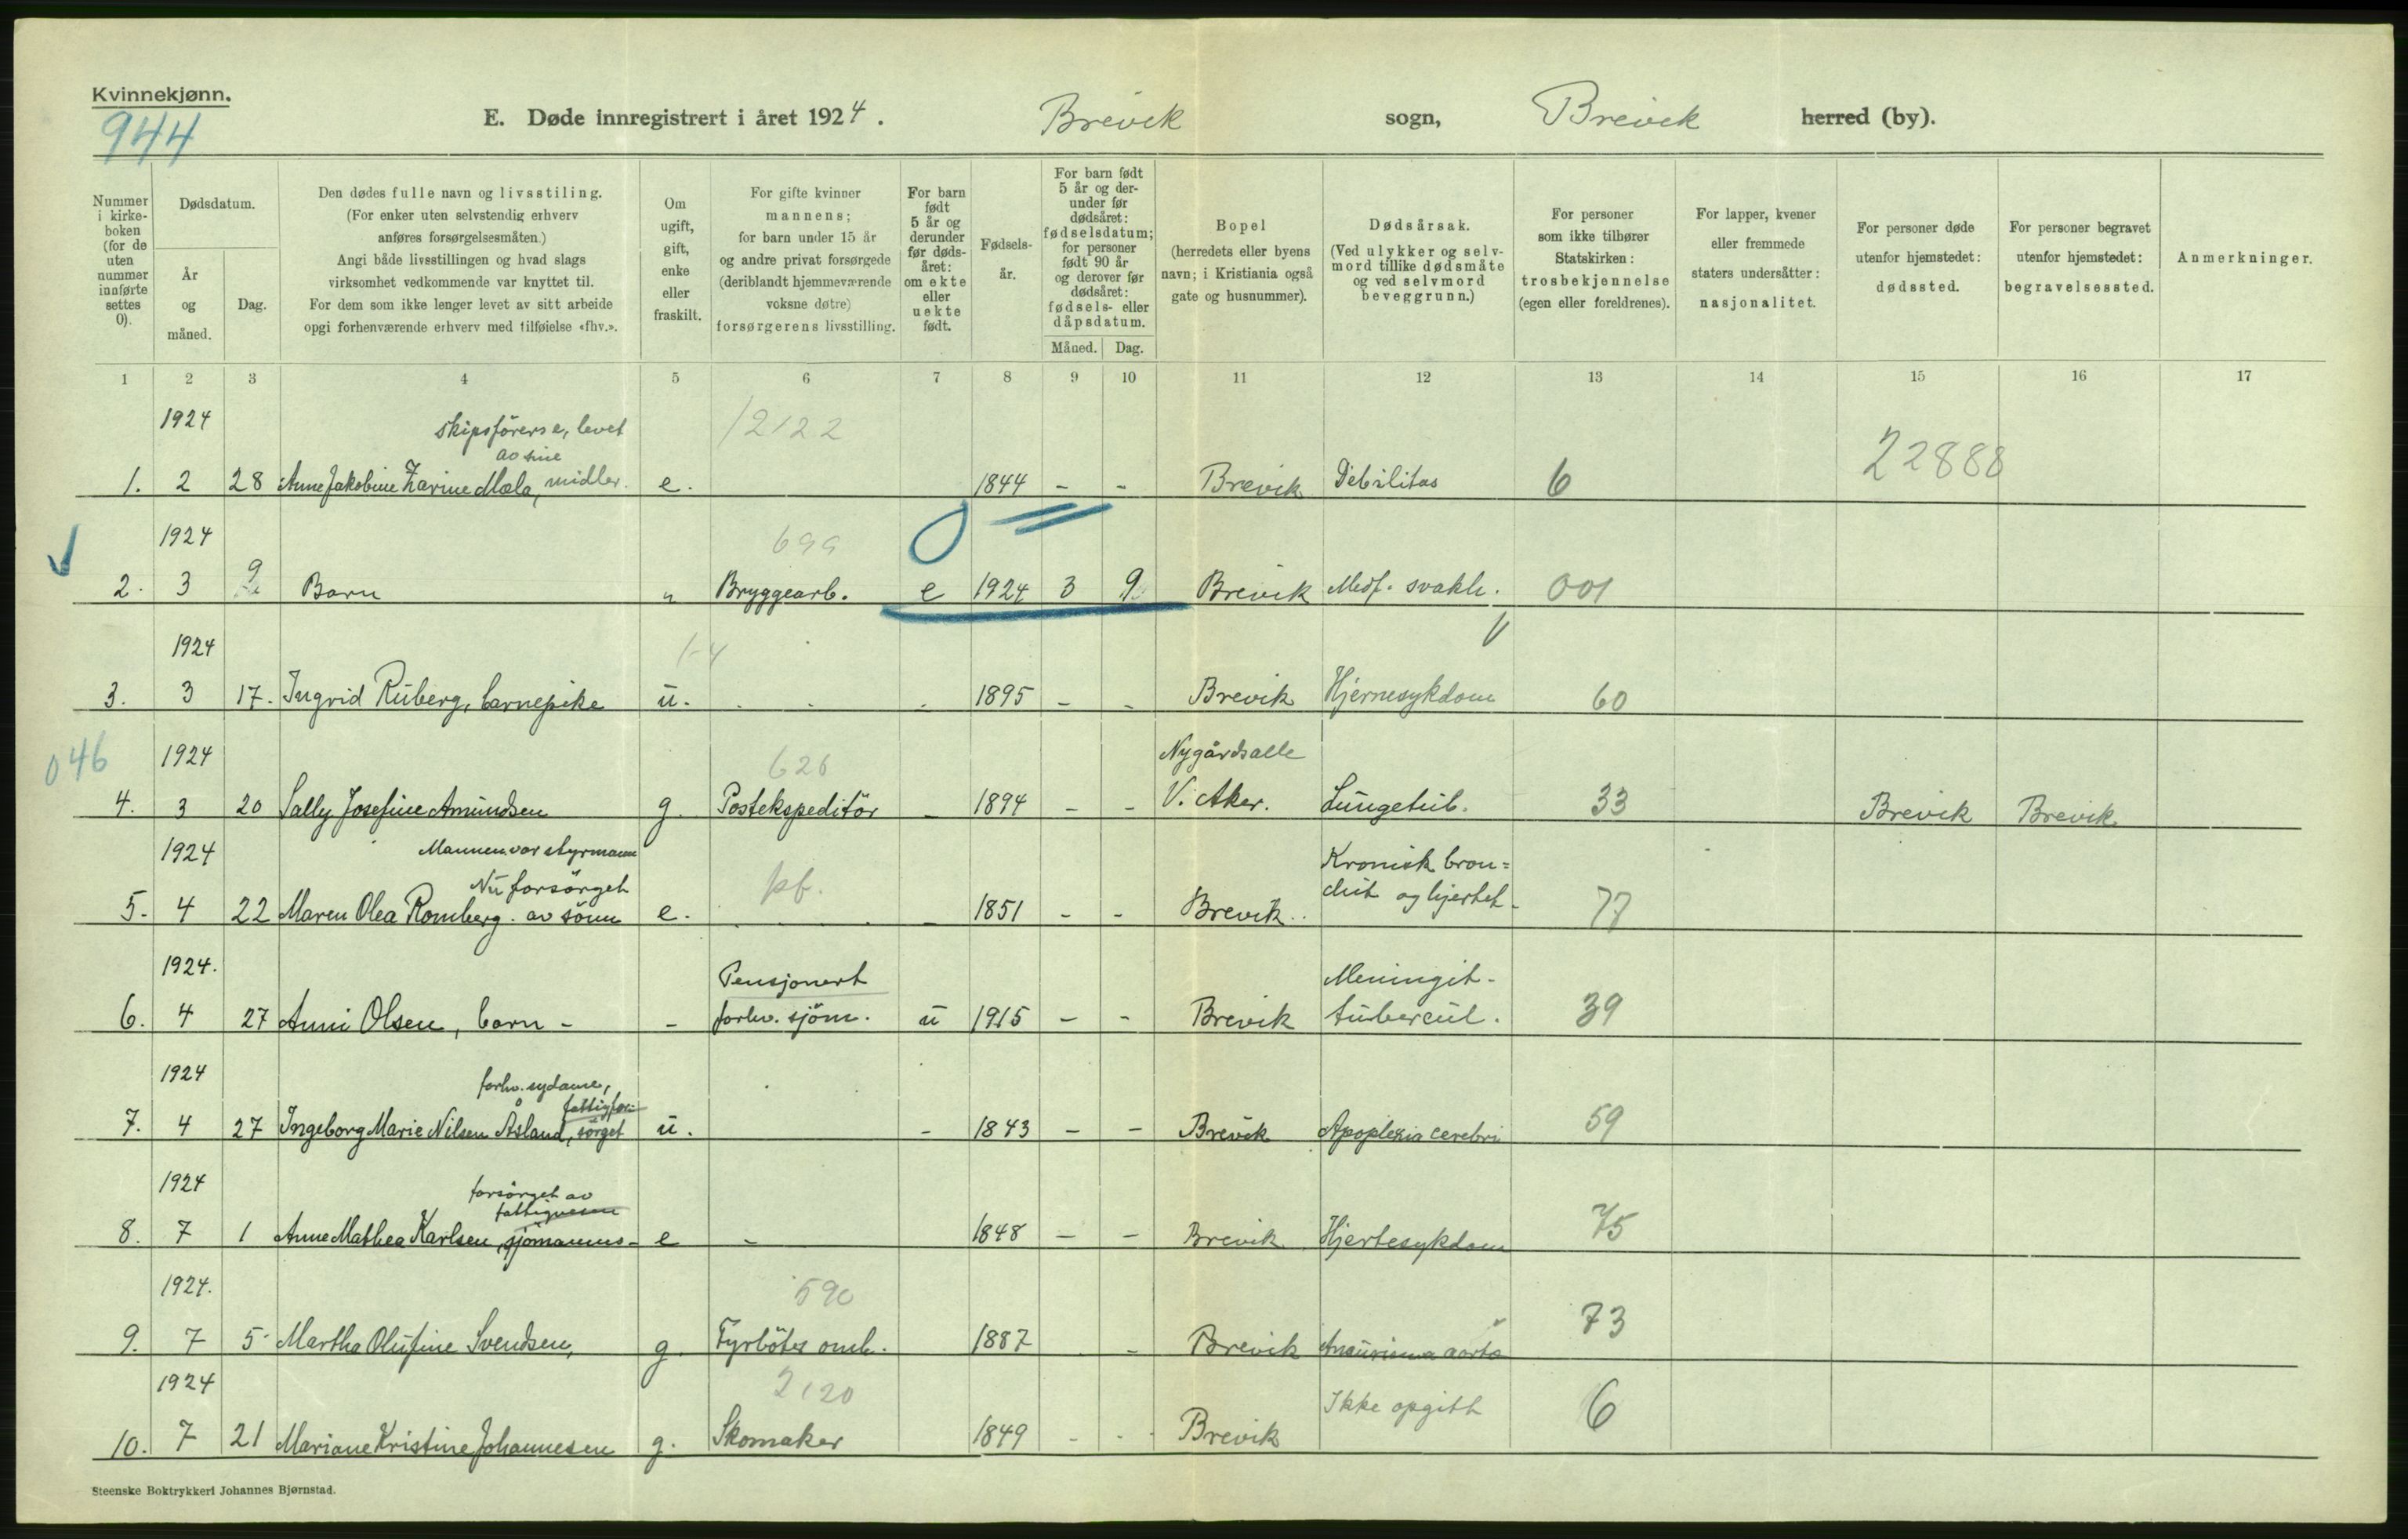 Kvinnekjønn.
944
E. Døde innregistrert i året 1924. Brevik sogn, Brevik herred (by).
Nummer i kirke-boken (for de uten nummer innførte settes 0).
Dødsdatum.
År og måned.
Dag.
Den dødes fulle navn og livsstiling.
(For enker uten selvstendig erhverv
anføres forsørgelsesmåten.)
Angi både livsstillingen og hvad slags
virksomhet vedkommende var knyttet til.
For dem som ikke lenger levet av sitt arbeide
opgi forhenværende erhverv med tilføielse «fhv.».
Om ugift, gift, enke eller fraskilt.
For gifte kvinner
mannens;
for barn under 15 år
og andre privat forsørgede
(deriblandt hjemmeværende
voksne døtre)
forsørgerens livsstilling.
For barn født 5 år og derunder før døds-året: om ekte eller uekte født.
Fødsels-år.
For barn født 5 år og der-under før dødsåret: fødselsdatum; for personer født 90 år og derover før dødsåret: fødsels- eller dåpsdatum.
Måned. Dag.
Bopel
(herredets eller byens
navn; i Kristiania også
gate og husnummer).
Dødsårsak.
(Ved ulykker og selv-
mord tillike dødsmåte
og ved selvmord
beveggrunn.)
For personer
som ikke tilhører
Statskirken:
trosbekjennelse
(egen eller foreldrenes).
For lapper, kvener
eller fremmede
staters undersåtter:
nasjonalitet.
For personer døde
utenfor hjemstedet:
dødssted.
For personer begravet
utenfor hjemstedet:
begravelsessted.
Anmerkninger.
1 2 3 4 5 6 7 8 9 10 11 12 13 14 15 16 17
1924 skipsförers e, levet 12122
av sine 22888
1. 2 28 Anne Jakobine Zarine Mæla, midler. e. 1844 - - Brevik Debilitas 6
1924 699
2. 3 9 Barn " Bryggearb. e 1924 3 9 Brevik Medf. svakh. 001
1924 1-4
3. 3 17. Ingrid Ruberg, barnepike u. 1895 - - Brevik Hjernesykdom 60
046 1924 626 Nygårdsalle
4. 3 20 Sally Josefine Amundsen g. Postekspeditör - 1894 - - V. Aker. Lungetub. 33 Brevik Brevik
1924 Mannen var styrmann Kronisk bron=
Nu forsörget pf. chit og hjertef.
5. 4 22 Maren Olea Romberg. av sönn e. - 1851 - - Brevik. 77
1924. Pensjonert Meningit-
6. 4 27 Anni Olsen, barn - - forhv. sjöm. u 1915 - - Brevik tubercul. 39
1924 forhv. sydame,
fattigfor-
7. 4 27 Ingeborg Marie Nilsen Åsland, sörget u. - 1843 - - Brevik Apoplexia cerebri 59
1924 forsörget av
fattigvesen
8. 7 1 Anne Mathea Karlsen, sjömanns- e - 1848 - - Brevik Hjertesykdom 75
1924. 590
9. 7 5 Martha Olufine Svendsen, g. Fyrböter omb. 1887 - Brevik Aneurisma aorta 73
1924 2120 Ikke opgitt
10. 7 21 Mariane Kristine Johannesen g. Skomaker 1849 - - Brevik 6
Steenske Boktrykkeri Johannes Bjørnstad.